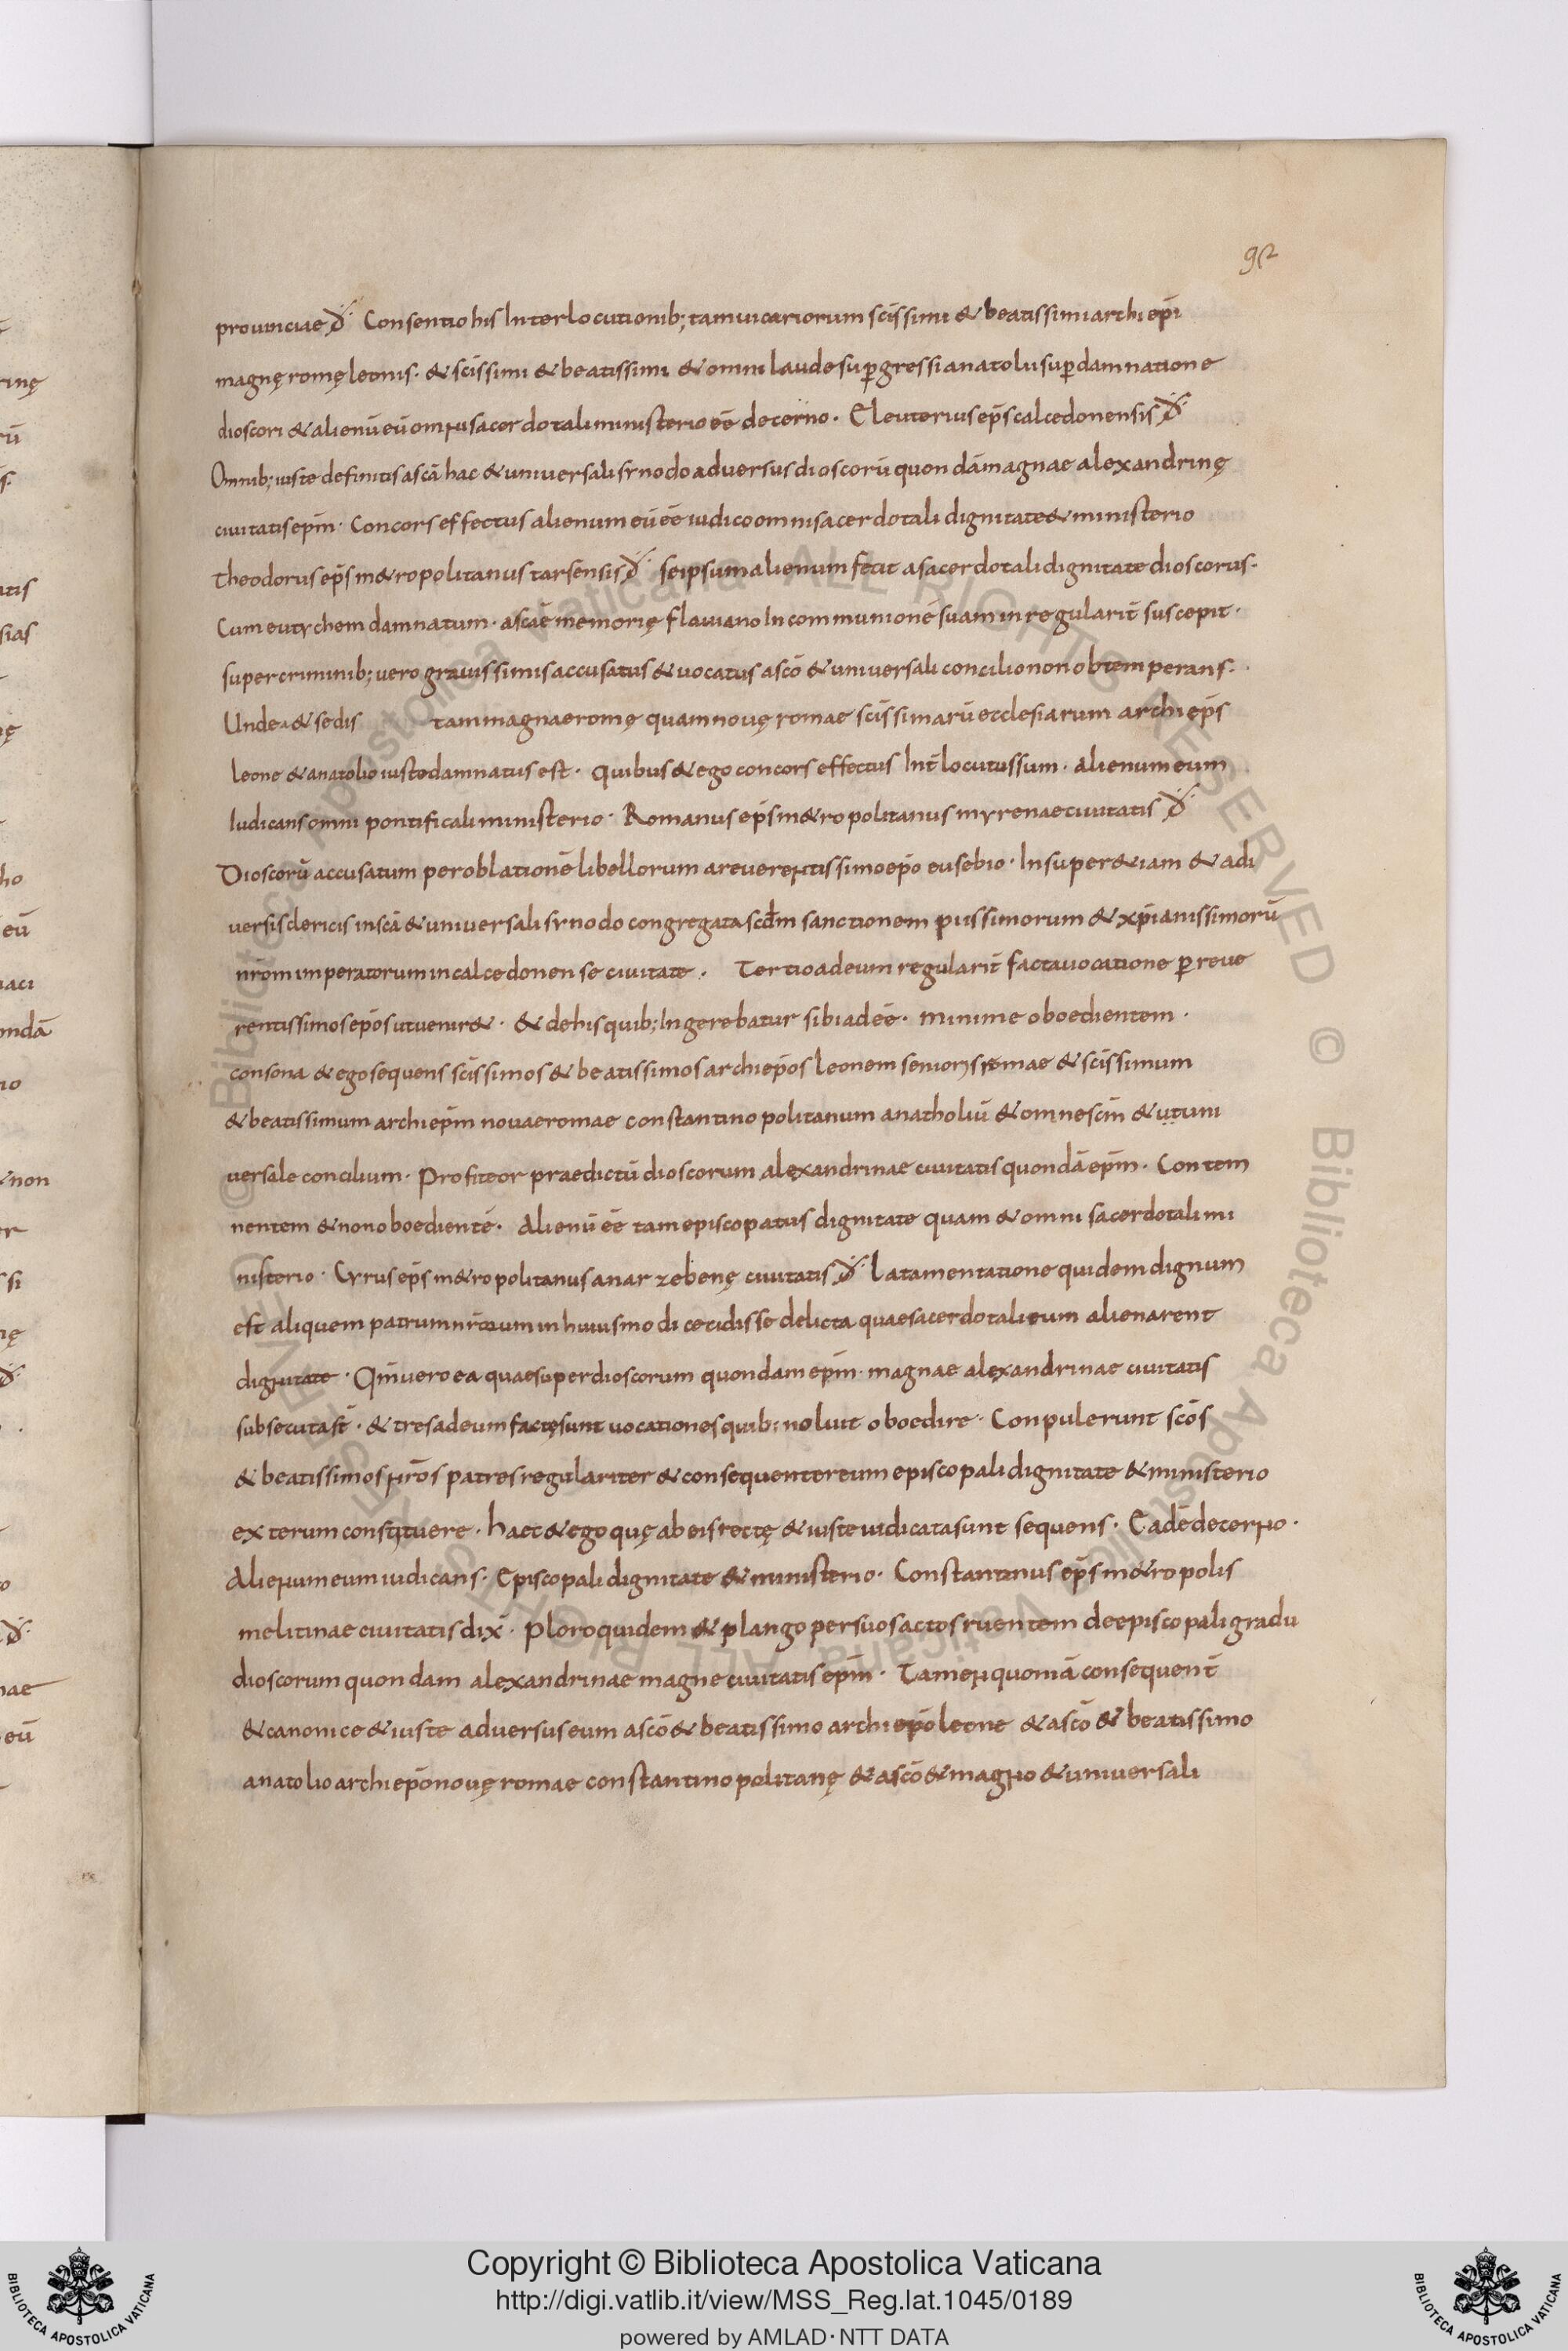 92
prouinciae dx̄. Consentio his Interlocutionib; tam uicariorum sc̄issimi & beatissimi archiep̄i
magnę romę leonis. & sc̄issimi & beatissimi & omni laude sup̄gressi anatolii sup̄ damnatione
dioscori & alienū eū omni sacerdotali ministerio eē decerno. Eleuterius ep̄s calcedonensis dx̄.
Omnib; iuste definitis a sc̄a hac & uniuersali synodo aduersus dioscorū quondā magnae alexandrinę
ciuitatis ep̄m. Concors effectus alienum eū eē iudico omni sacerdotali dignitate & ministerio
theodorus ep̄s m&ropolitanus tarsensis dx̄. se ipsum alienum fecit a sacerdotali dignitate dioscorus.
Cum eutychem damnatum. a sc̄ae memorię flauiano In communionē suam inregularit̄ suscepit.
super criminib; uero grauissimis accusatus & uocatus a sc̄o & uniuersali concilio non obtemperans.
Unde a & sedis tam magnae romę quam nouę romae sc̄issimarū ecclesiarum archiep̄s
leone & anatolio iuste damnatus est. quibus & ego concors effectus Int̄locutus sum. alienum eum
Iudicans omni pontificali ministerio. Romanus ep̄s m&ropolitanus myrenae ciuitatis dx̄.
Dioscorū accusatum per oblationē libellorum a reuerentissimo ep̄o eusebio. Insuper & iam & a di
uersis clericis in sc̄a & uniuersali synodo congregata scdm̄ sanctionem piissimorum & xp̄ianissimorū
nr̄om imperatorum in calcedonense ciuitate. Tertio ad eum regularit̄ facta uocatione p̄ reue
rentissimos ep̄os ut uenir&. & de his quib; Ingerebatur sibi adeē. minime oboedientem.
consona & ego sequens sc̄issimos & beatissimos archiep̄os leonem senioris romae & sc̄issimum
& beatissimum archiep̄m nouae romae constantinopolitanum anatholiū & omne sc̄m & ut uni
uersale concilium. Profiteor praedictū dioscorum alexandrinae ciuitatis quondā ep̄m. Contem
nentem & non oboedientē. Alienū eē tam episcopatus dignitate quam & omni sacerdotali mi
nisterio. Cyrus ep̄s m&ropolitanus anarzebenę ciuitatis dx̄. Latamentatione quidem dignum
est aliquem patrum nr̄orum in huiusmodi cecidisse delicta quae sacerdotali eum alienarent
dignitate. Qm̄ uero ea quae super dioscorum quondam ep̄m. magnae alexandrinae ciuitatis
subsecuta st̄. & tres ad eum factę sunt uocationes quib; noluit oboedire. Conpulerunt sc̄os
& beatissimos nr̄os patres regulariter & consequenter eum episcopali dignitate & ministerio
exterum constituere. haec & ego quę ab eis rectę & iuste iudicata sunt sequens. Eadē decerno.
Alienum eum iudicans. Episcopali dignitate & ministerio. Constantinus ep̄s m&ropolis
melitinae ciuitatis dix̄. Ploro quidem & plango per suos actos ruentem de episcopali gradu
dioscorum quondam alexandrinae magne ciuitatis ep̄m. Tamen quoniā consequent̄
& canonice & iuste aduersus eum a sc̄o & beatissimo archiep̄o leone & a sc̄o & beatissimo
anatolio archiep̄o nouę romae constantinopolitanę & a sc̄o & magno & uniuersali
Copyright © Biblioteca Apostolica Vaticana
http://digi.vatlib.it/view/MSS_Reg.lat.1045/0189
powered by AMLAD·NTT DATA